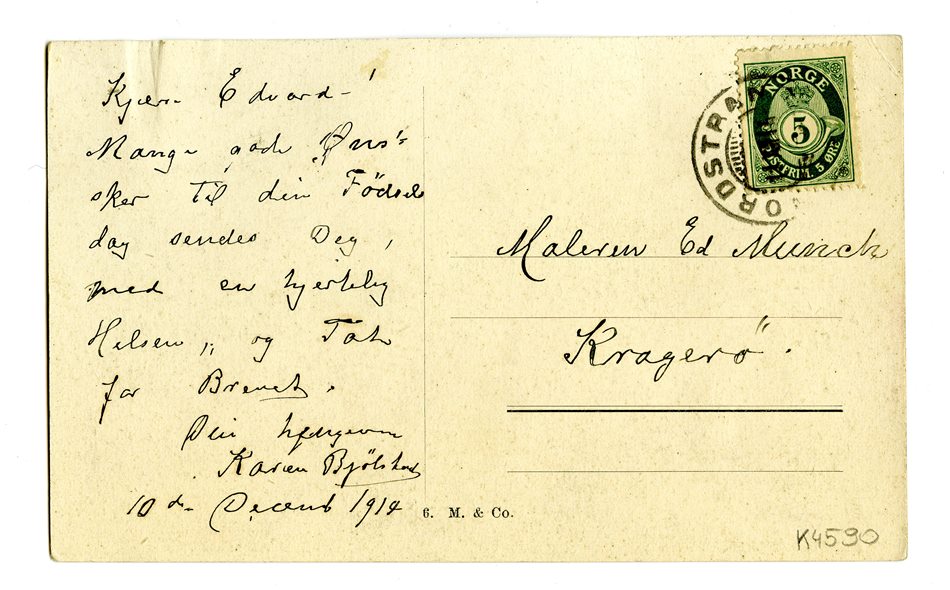 Kjære Edvard!
Mange gode Øns-
sker til din Födsels
dag sendes Deg,
med en hjertelig
Hilsen, og Tak
for Brevet.
Din hengivne
Karen Bjölstad
10de Decemb 1914
NORDSTRAND
NORGE
5
POSTFRIM. 5 ØRE
Maleren Ed Munch
Kragerö.
6. M. & Co.
K4590